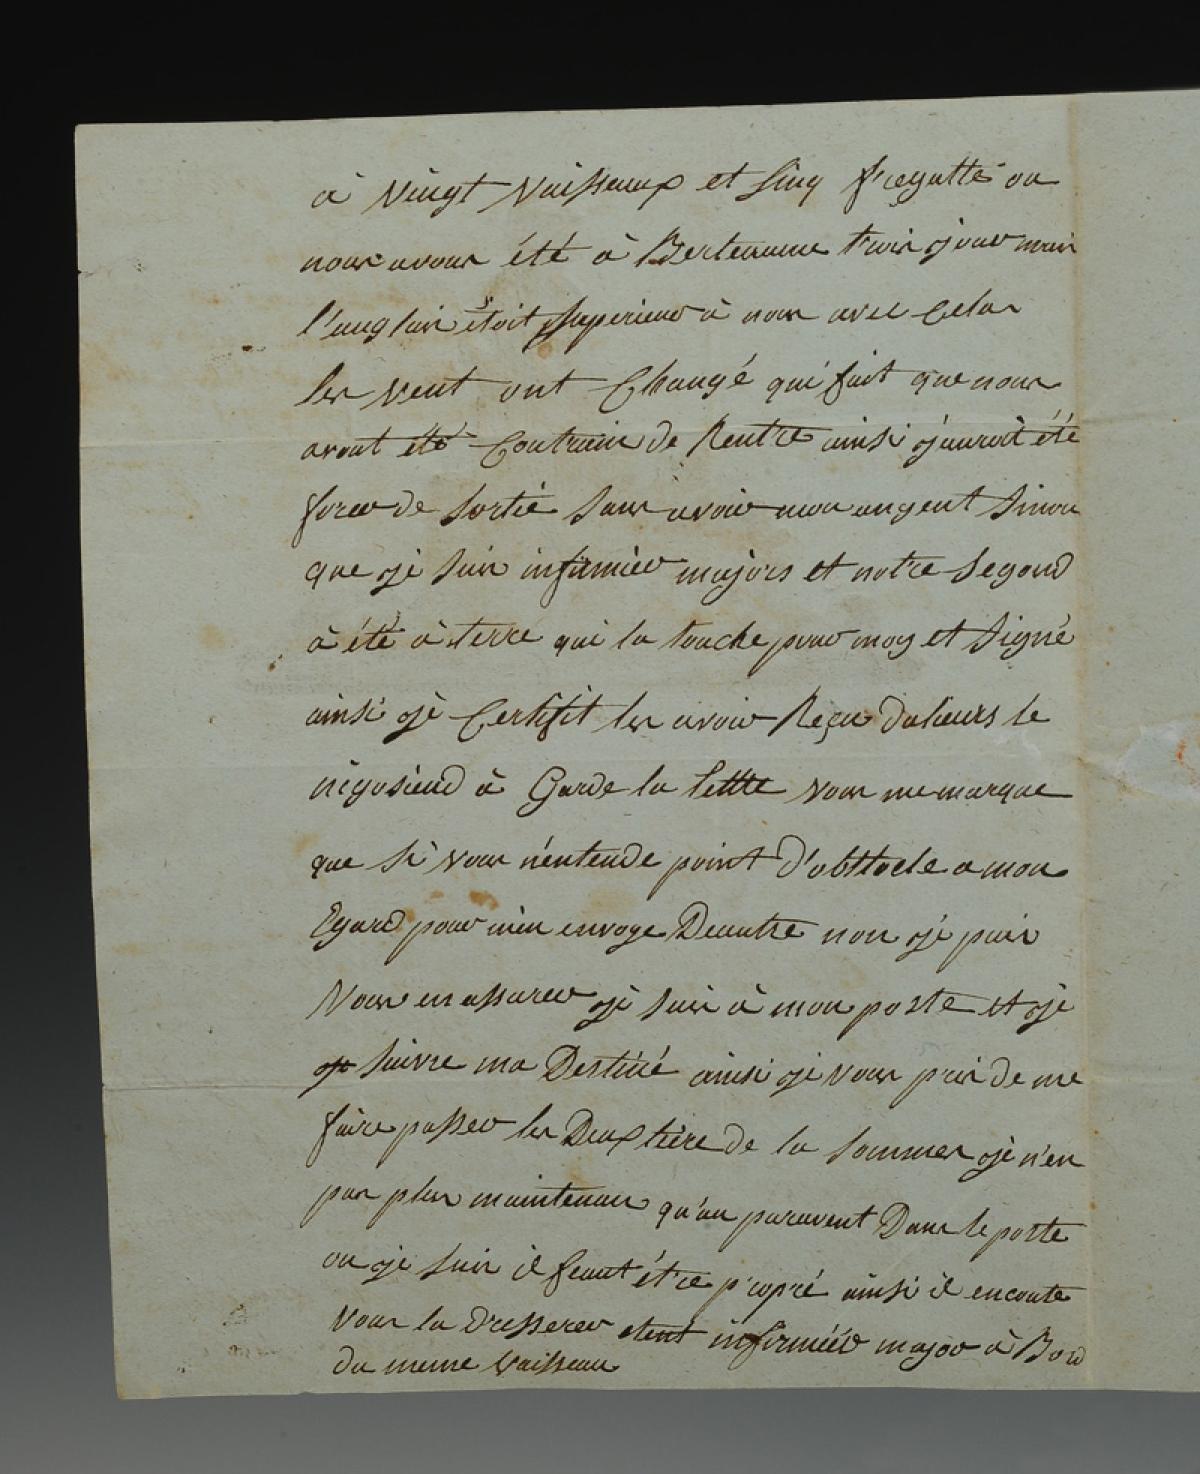 à vingt vaisseaux et sinq fregatte ou
nous avons été à Bertenaume trois jour mais
l'anglais étoit supérieur à nous avec cela
les vent ont changé qui fait que nous
avont été contrain de rentré ainsi j'auroit été
forcer de sortié sans avoir mon argent sinon
que je suis infirmier majors et notre segond
à été à terre qui la touche pour moy et signé
ainsi je certifit les avoir reçu dalieurs le
négosiend à garde la lettre vous me marque
que si vous n'entende point d'obstocle a mon
egard pour m'en envoye deautre non je puis
vous en assurer je suis à mon poste et je
suivre ma destiné ainsi je vous pris de me
faire passer les deux tière de la sommes je n'en
pas plus maintenans qu'au paravent dans le poste
ou je suis il feaut étre propré ainsi il en coute
vous la dresserer etent infirmiér major à bord
du meme vaisseau